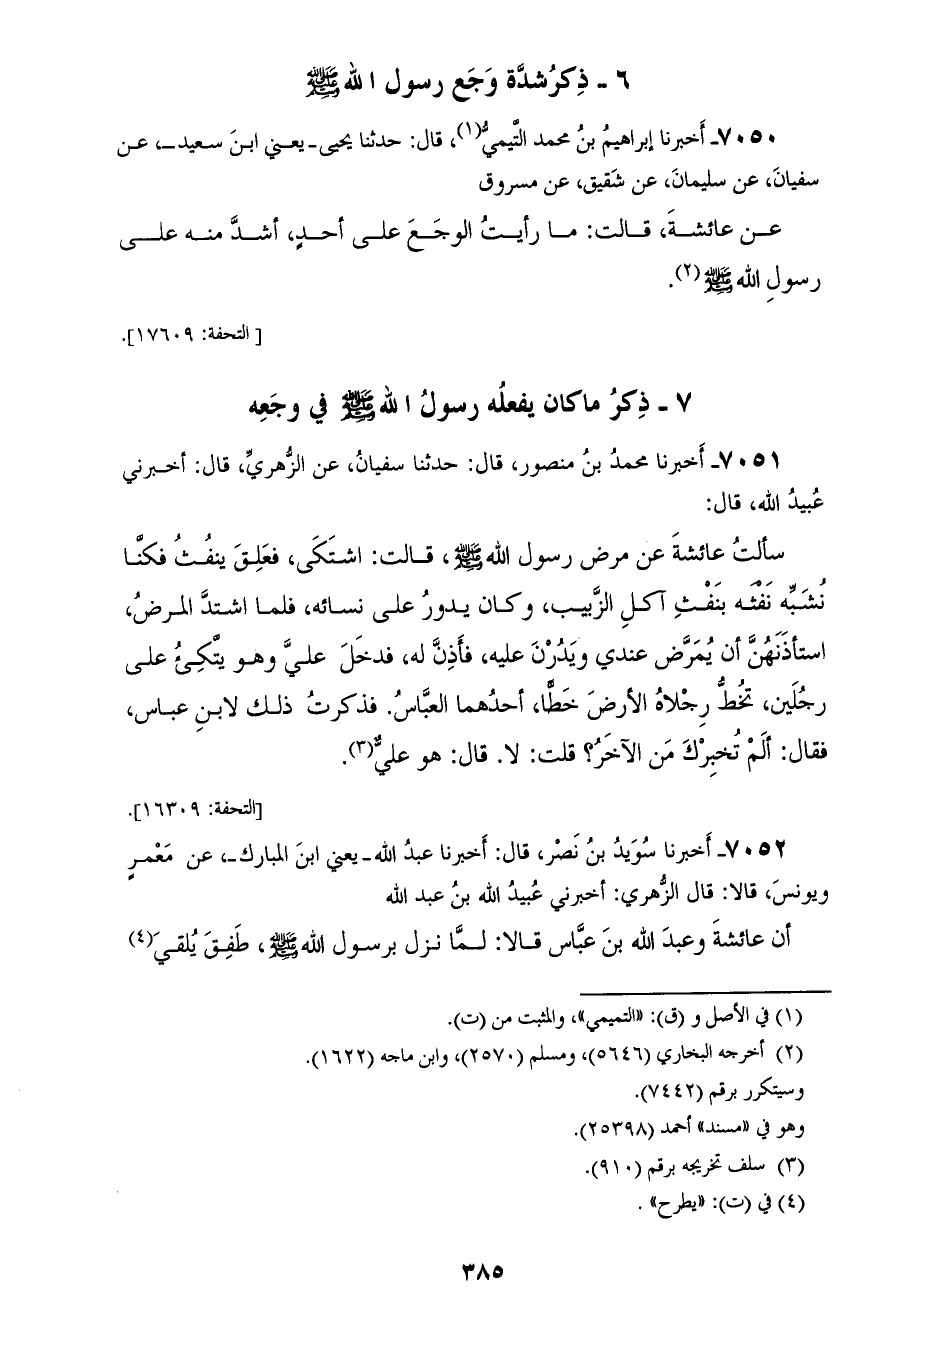 ٦ ـ ذِكرُ شدَّة وَجَع رسول الله ﷺ
٧٠٥٠ـ أَخبرنا إبراهيمُ بنُ محمد التَّيميُّ(١)، قال: حدثنا يحيى ـ يعني ابنَ سعيد ـ، عن
سفيانَ، عن سليمانَ، عن شَقيق، عن مسروق
عن عائشةَ، قالت: ما رأيتُ الوجَعَ على أحدٍ، أشدَّ منه على
رسولِ الله ﷺ(٢).
[ التحفة: ١٧٦٠٩].
٧ ـ ذِكرُ ماكان يفعلُه رسولُ الله ﷺ في وجَعِه
٧٠٥١ـ أَخبرنا محمدُ بنُ منصور، قال: حدثنا سفيانُ، عن الزُّهريِّ، قال: أخبرني
عُبيدُ الله، قال:
سألتُ عائشةَ عن مرض رسول الله ﷺ، قالت: اشتَكَى، فعَلِقَ ينفُثُ فكنَّا
نُشَبِّه نَفْثَه بنَفْثِ آكلِ الزَّبيب، وكان يدورُ على نسائه، فلما اشتدَّ المرضُ،
استأذَنَهُنَّ أن يُمَرَّض عندي ويَدُرْنَ عليه، فأَذِنَّ له، فدخَلَ عليَّ وهو يتَّكِئُ على
رجُلَين، تخُطُّ رِجْلاهُ الأرضَ خَطًّا، أحدُهما العبَّاسُ. فذكرتُ ذلك لابنِ عباس،
فقال: ألَمْ تُخبِرْكَ مَن الآخَرُ؟ قلت: لا. قال: هو عليٌّ(٣).
[التحفة: ١٦٣٠٩].
٧٠٥٢ـ أَخبرنا سُوَيدُ بنُ نَصْر، قال: أَخبرنا عبدُ الله ـ يعني ابنَ المبارك ـ، عن مَعْمرٍ
ويونسَ، قالا: قال الزُّهري: أخبرني عُبيدُ الله بنُ عبد الله
أن عائشةَ وعبدَ الله بنَ عبَّاس قالا: لمَّا نزل برسول الله ﷺ، طَفِقَ يُلقيَ(٤)
(١) في الأصل و (ق): «التميمي»، والمثبت من (ت).
(٢) أخرجه البخاري (٥٦٤٦)، ومسلم (٢٥٧٠)، وابن ماجه (١٦٢٢).
وسيتكرر برقم (٧٤٤٢).
وهو في «مسند» أحمد (٢٥٣٩٨).
(٣) سلف تخريجه برقم (٩١٠).
(٤) في (ت): «يطرح» .
٣٨٥